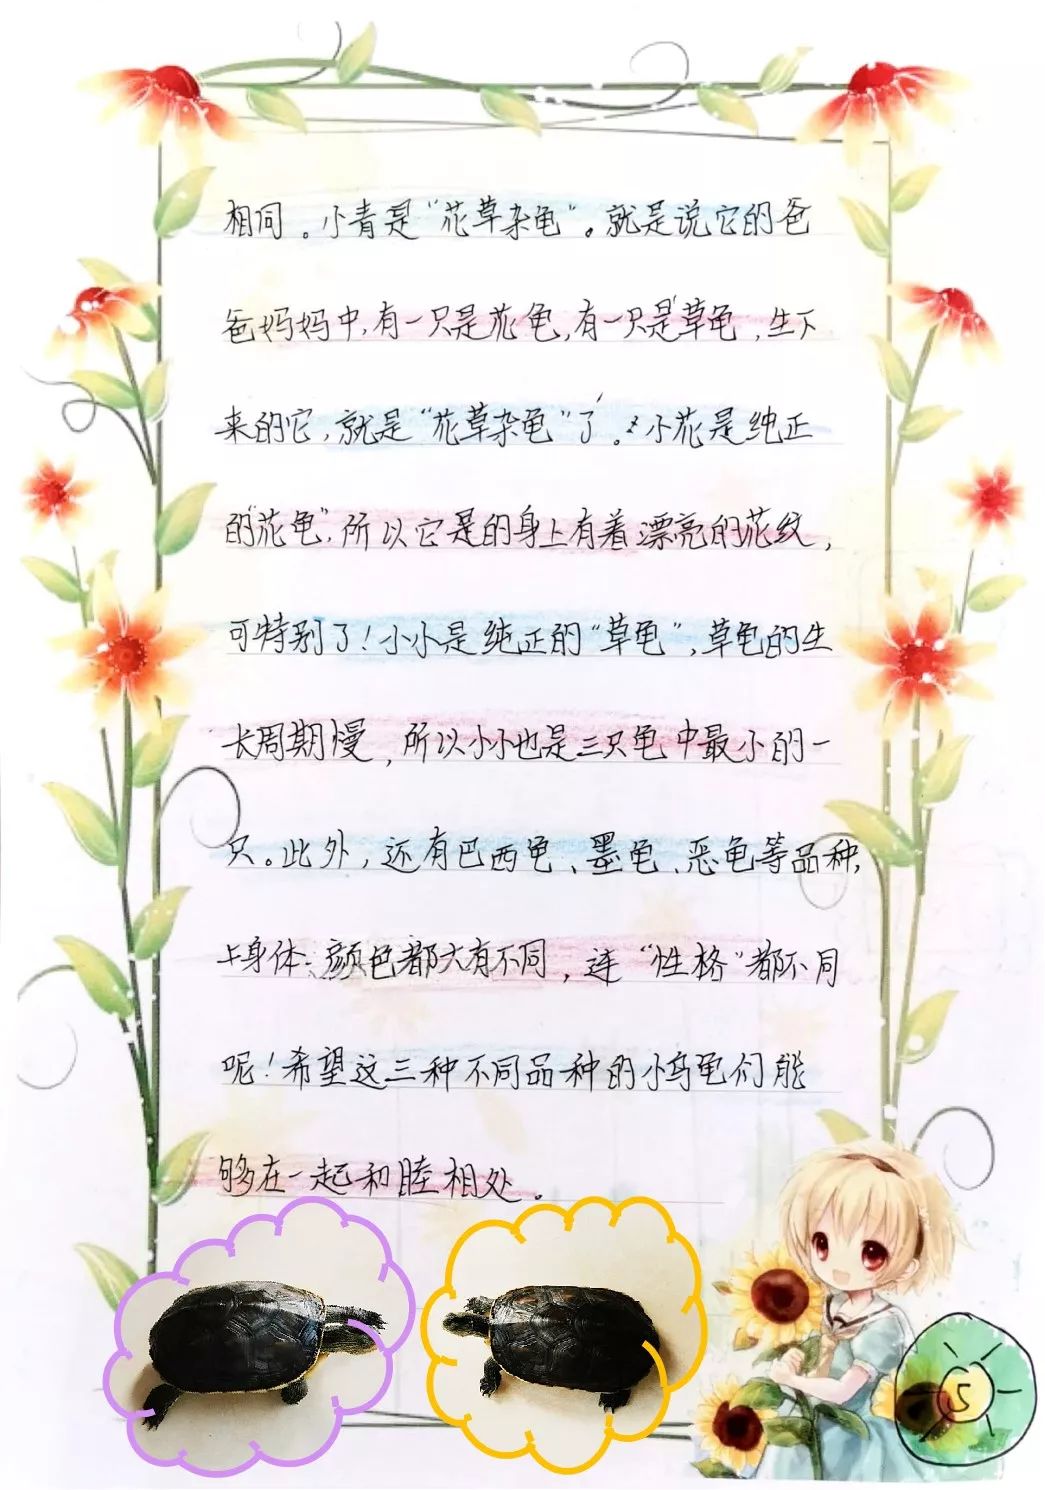 相同。小青是“花草杂龟”。就是说它的爸
爸妈妈中，有一只是花龟，有一只是草龟，生下
来的它，就是“花草杂龟”了。小花是纯正
的“花龟”，所以它是的身上有着漂亮的花纹，
可特别了！小小是纯正的“草龟”，草龟的生
长周期慢，所以小小也是三只龟中最小的一
只。此外，还有巴西龟、墨龟、恶龟等品种，
上身体、颜色都大有不同，连“性格”都不同
呢！希望这三种不同品种的小乌龟们能
够在一起和睦相处。
5